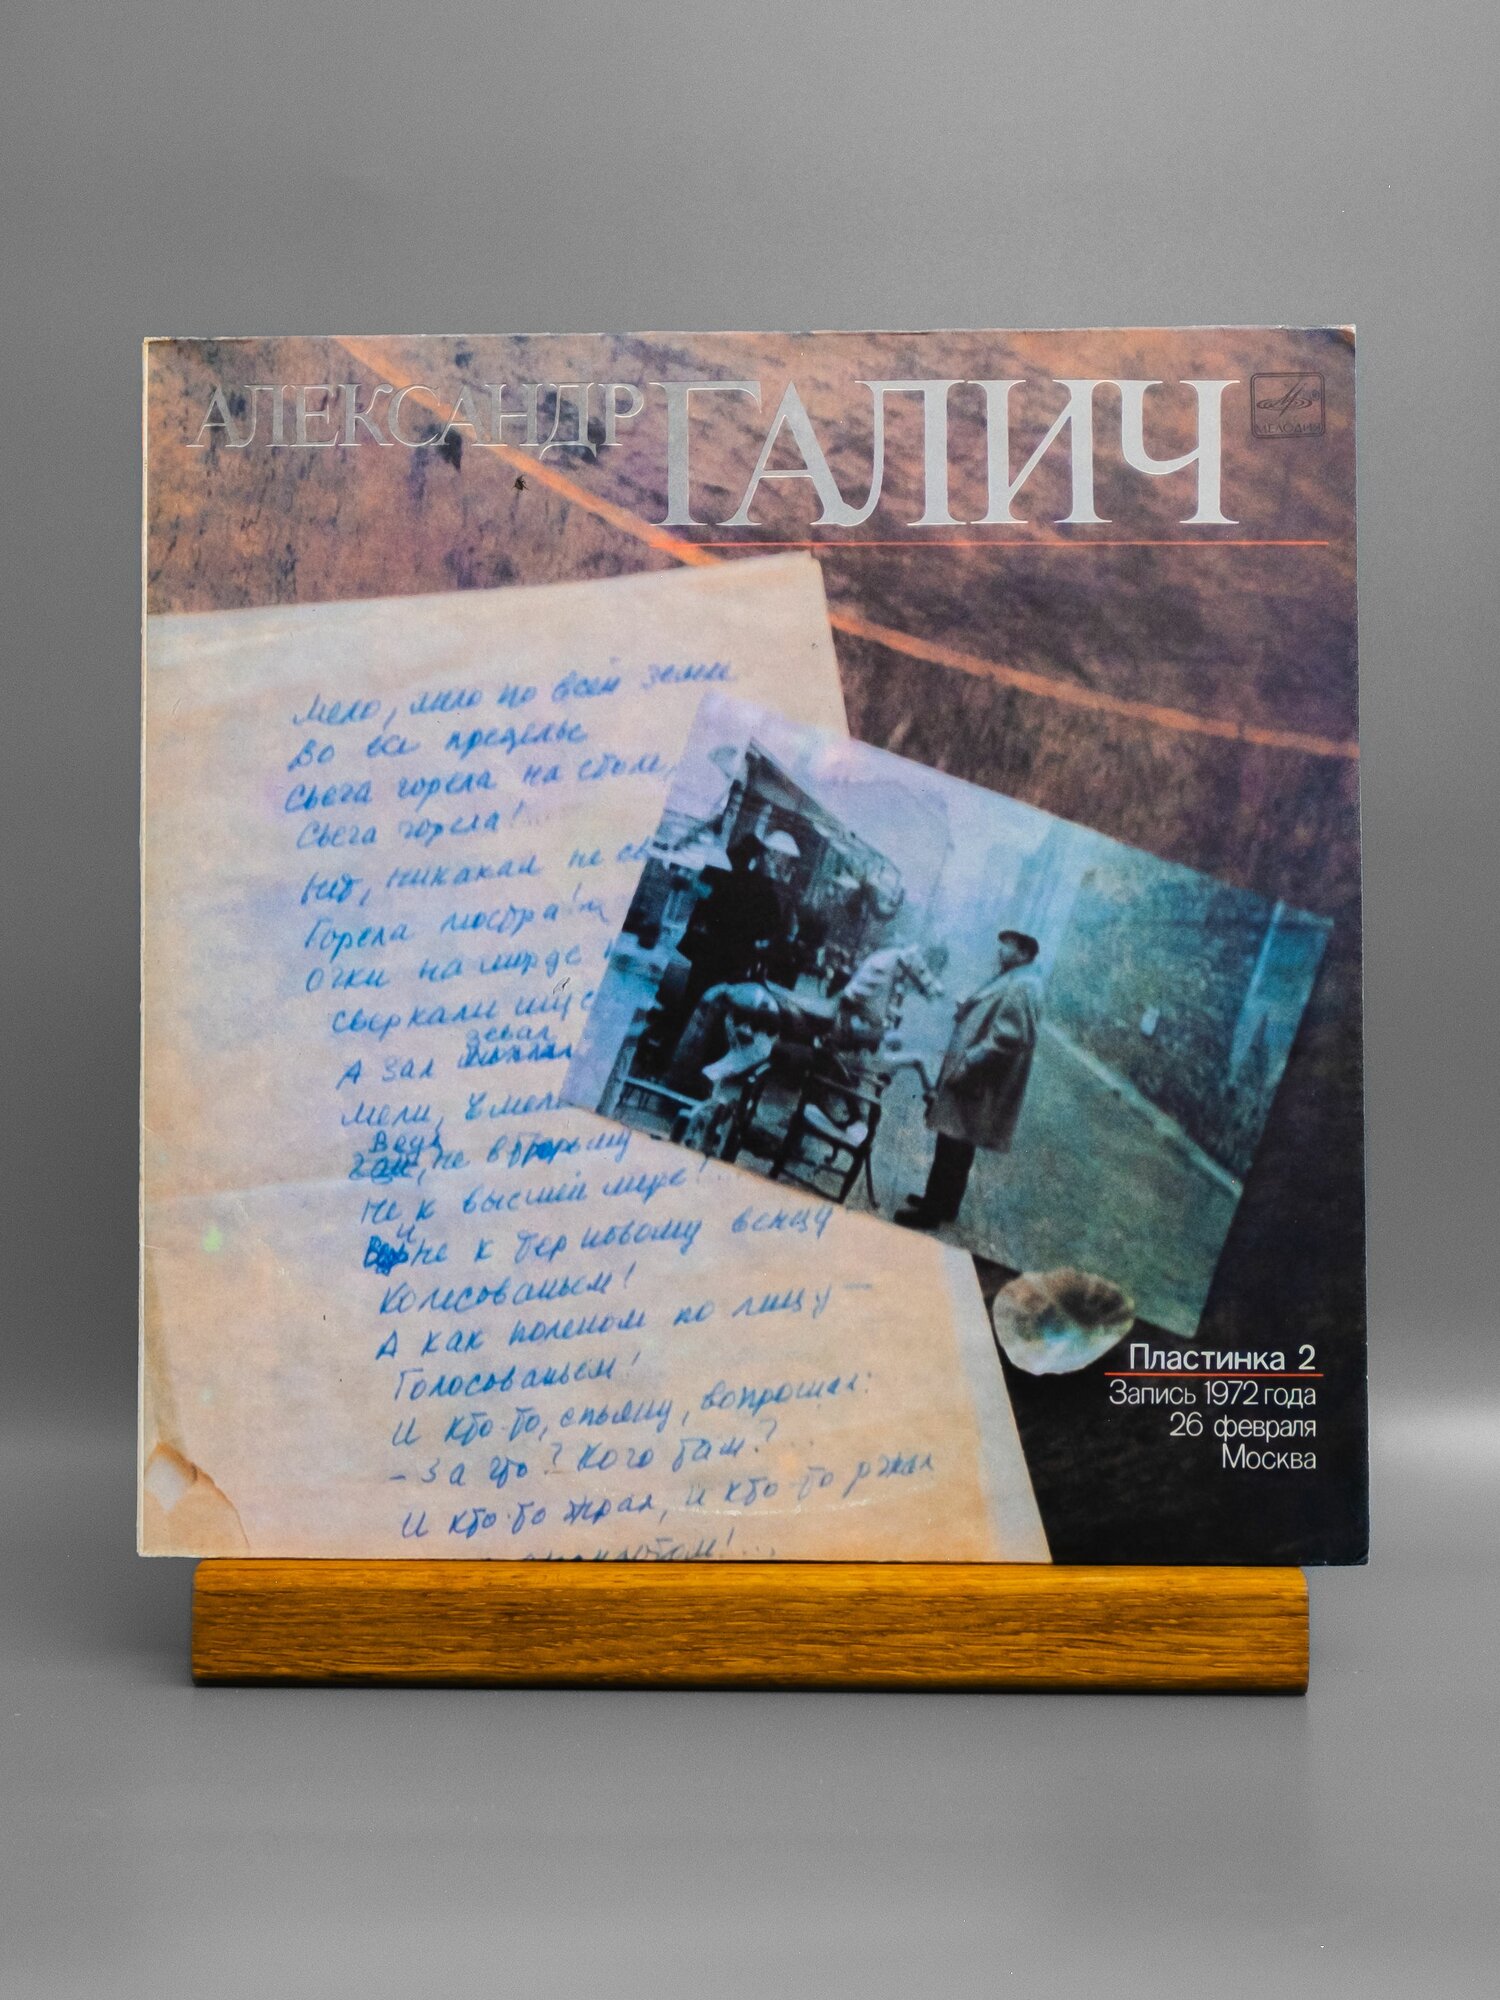 АЛЕКСАНДР ГАЛИЧ
МЕЛОДИЯ
Мело, мело по всей земле
Во все пределы
Свеча горела на столе,
Свеча горела!
Нет, никакая не св
Горела люстра!
Очки на морде
Сверкали шус
зевал
А зал
мели, Емеля
Ведь
не в тюрьму
Не к высшей мере!
И
не к терновому венцу
Колесованьем!
А как поленом по лицу —
Голосованьем!
И кто-то, спьяну, вопрошал:
- За что? Кого там?
И кто-то жрал, и кто-то ржал
Пластинка 2
Запись 1972 года
26 февраля
Москва